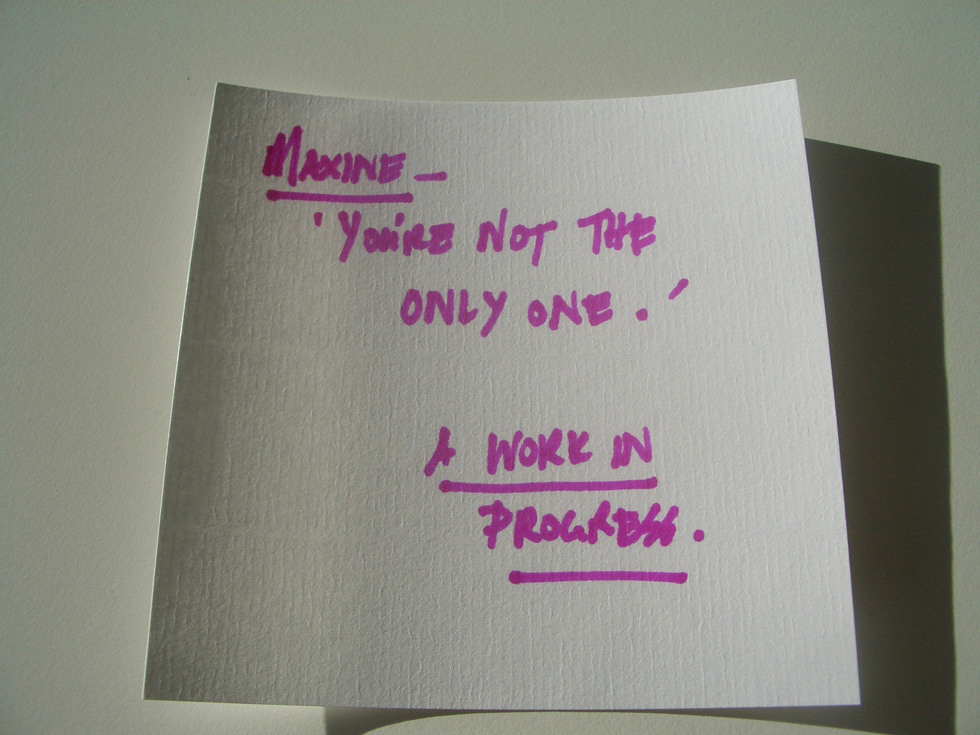 MAXINE –
'YOU'RE NOT THE
ONLY ONE.'
A WORK IN
PROGRESS.